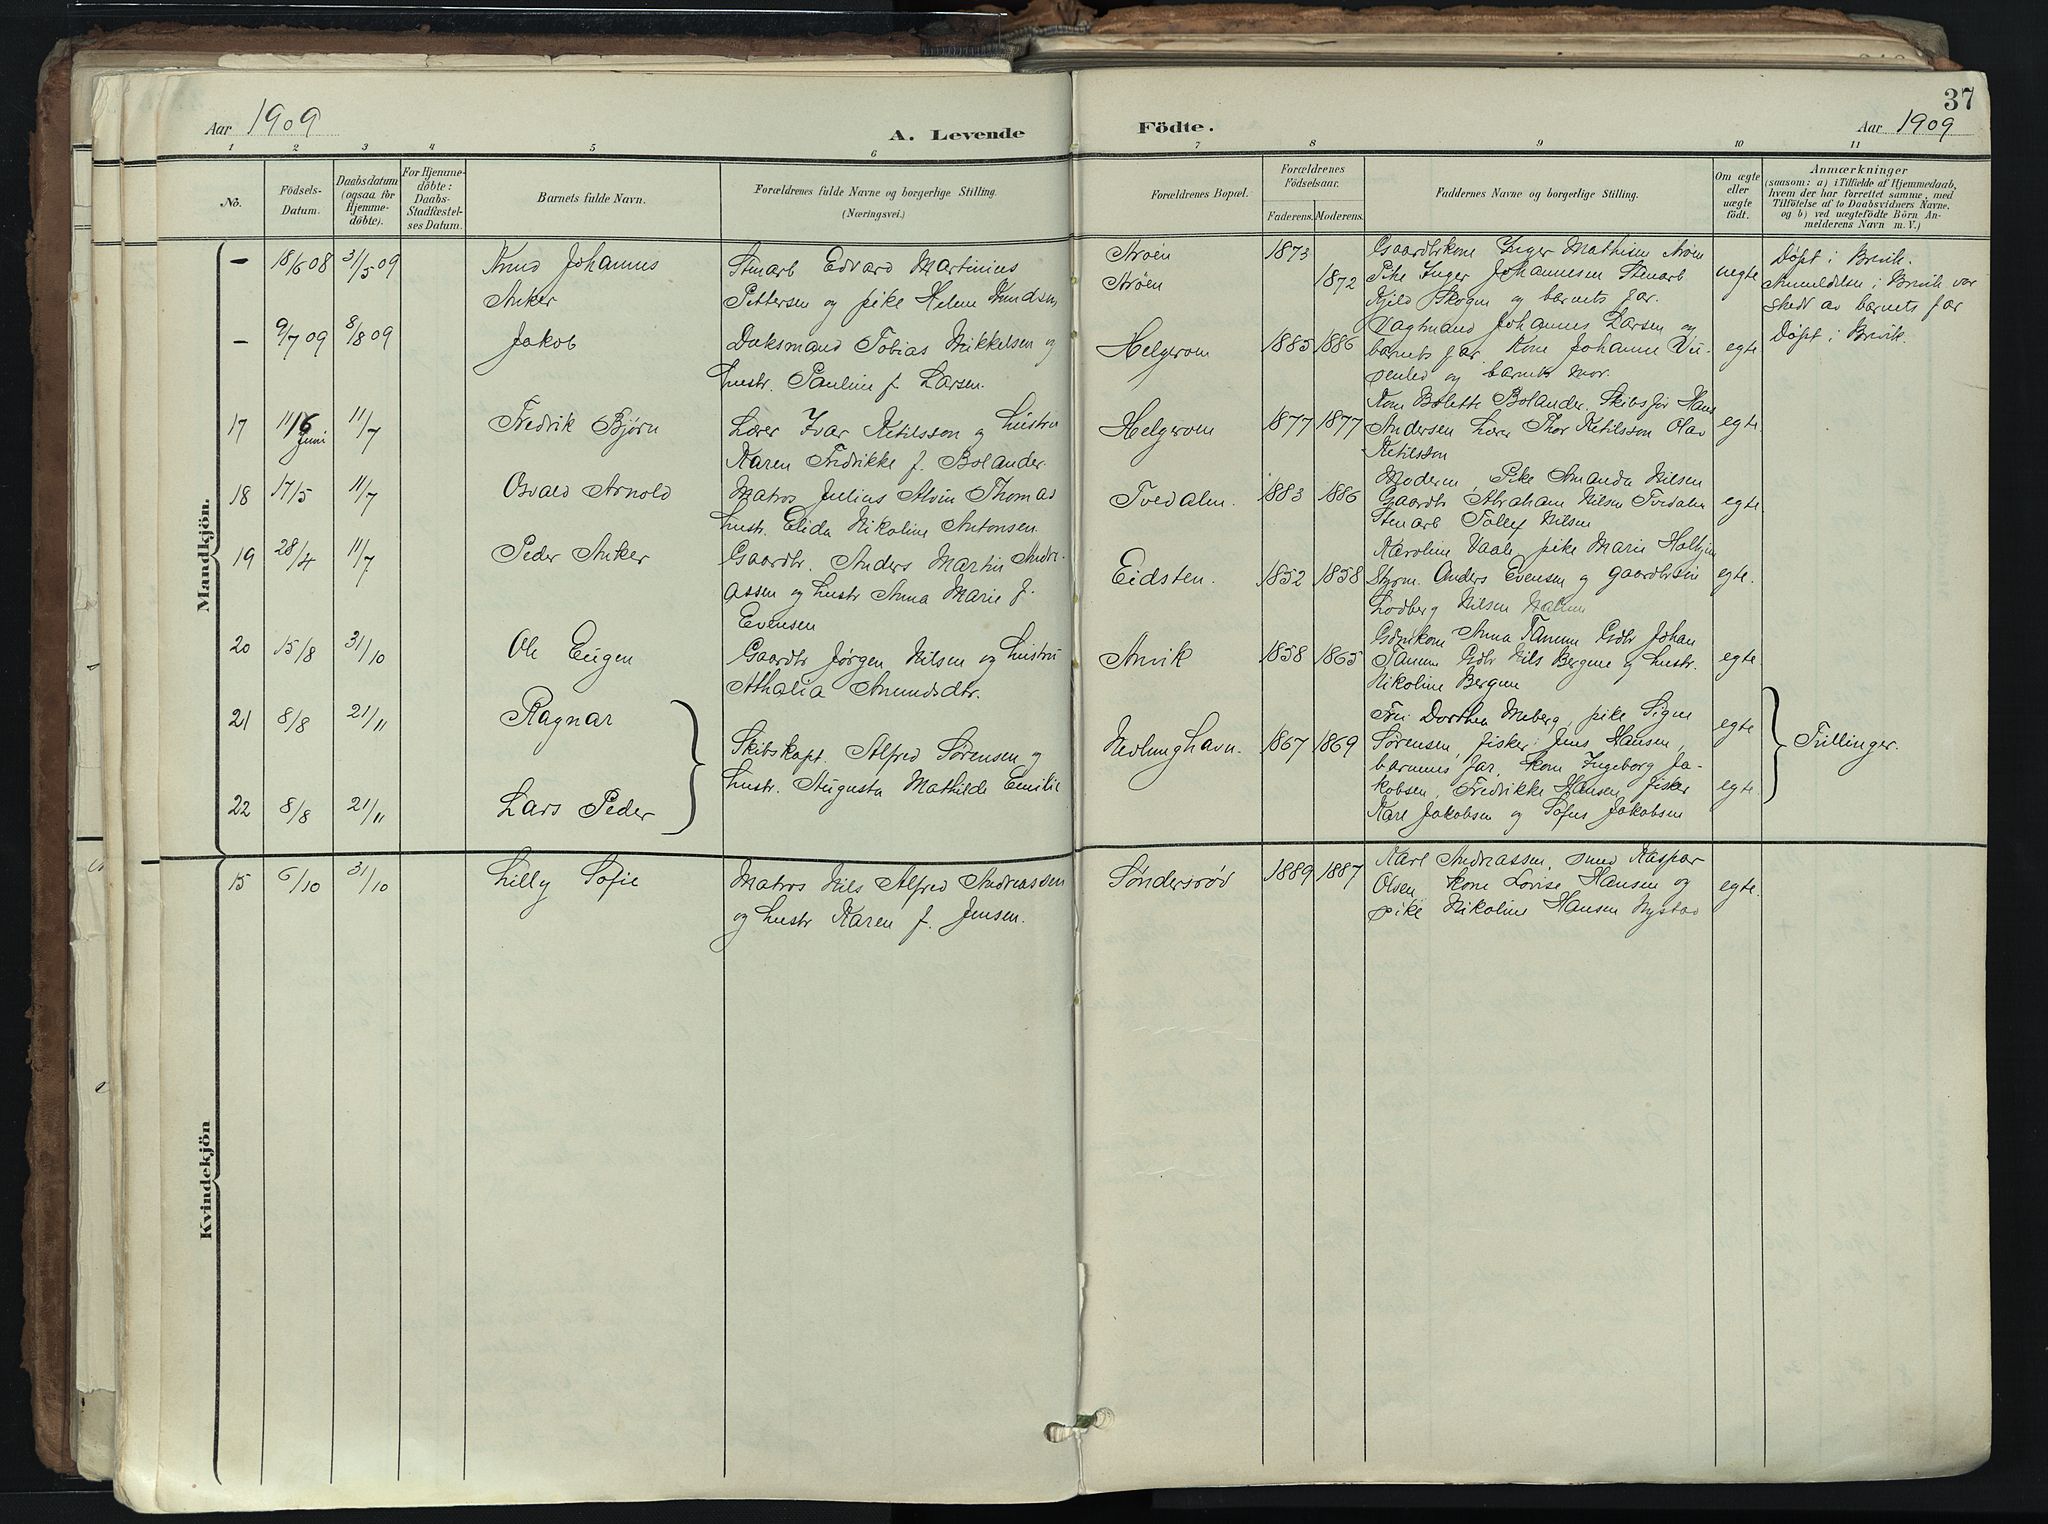 37
Aar 1909
A. Levende
Födte.
Aar 1909
1 2 3 4 5 6 7 8 9 10 11
No.
Födsels-
Datum.
Daabsdatum
(ogsaa for
Hjemme-
döbte).
For Hjemme-
döbte:
Daabs-
Stadfæstel-
ses Datum.
Barnets fulde Navn.
Forældrenes fulde Navne og borgerlige Stilling.
(Næringsvei.)
Forældrenes Bopæl.
Forældrenes
Födselsaar.
Faderens. Moderens.
Faddernes Navne og borgerlige Stilling.
Om ægte
eller
uægte
født.
Anmærkninger
(saasom: a) i Tilfælde af Hjemmedaab,
hvem der har forrettet samme, med
Tilföielse af to Daabsvidners Navne,
og b) ved uegtefödte Börn An-
melderens Navn m. V.)
Mandkjön.
- 18/6 08 31/5 09
Knud Johannes
Anker
Stenarb Edvard Martinius
Pettersen og pike Helene Knudsen
Arøen
Arøen
1873
1872
Gaardbrkone Inger Mathisen Arøen
Pike Inger Johannesen Stenarb
Kjeld Skogen og barnets far.
uegte
Døpt i Brevik.
Anmeldelse i Brevik var
skedt av barnets far
- 9/7 09 8/8 09
Jakob
Daksmand Tobias Mikkelsen og
hustr. Pauline f. Larsen.
Helgerom
1885 1886
Vagtmand Johannes Larsen og
barnets far. Kone Johanne Vii-
penled og barnets mor.
egte
Døpt i Brevik.
17 11/6 Juni 11/7
Fredrik Bjørn
Lærer Ivar Ketilsson og hustru
Karen Fredrikke f. Bolander.
Helgerom
1877 1877
Kone Bolette Bolander. Skibsfør Hans
Andersen Lærer Thor Ketilsson Olav
Ketilsson
egte
18 17/5 11/7
Osvald Arnold
Matros Julius Alvin Thomas
hustr. Elida Nikoline Antonsen.
Tvedalen.
1883 1886
Moderen, Pike Amanda Nilsen
Gaardbr Abraham Nilsen Tvedalen
Stenarb Tollef Nilsen
egte.
19 28/4 11/7
Peder Anker
Gaardbr. Anders Martin Andre-
assen og hustr Anna Marie f.
Evensen
Eidsten.
1852 1858
Karoline Vaale, pike Marie Holtjen
Styrm. Anders Evensen og gaardbrsøn
Lodberg Nilsen Malmen
egte.
20 15/8 31/10
Ole Eugen
Gaardbr Jørgen Nilsen og hustru
Athalia Amundsdtr.
Anvik
1858 1865
Gdbrkone Anna Tanum Gdbr Johan
Tanum Gdbr Nils Bergene og hustr.
Nikoline Bergene
egte
21 8/8 21/11
Ragnar
22 8/8 21/11
Lars Peder
Skibskapt. Alfred Sørensen og
hustr. Augusta Mathilde Emilie
Nevlunghavn.
1867 1869
Fru Dorthea Meberg, pike Signe
Sørensen, fisker Jens Hansen,
barnenes far, kone Ingeborg Ja-
kobsen, Fredrikke Hansen, fisker
Karl Jakobsen og Sofus Jakobsen
egte
egte
Tvillinger.
Kvindekjön
15 6/10 31/10
Lilly Sofie
Matros Nils Alfred Andreassen
og hustr Karen f. Jensen.
Søndersrød
1889 1887
Karl Andreassen, smed Kaspar
Olsen, kone Lovise Hansen og
pike Nikoline Hansen Nystad
egte.